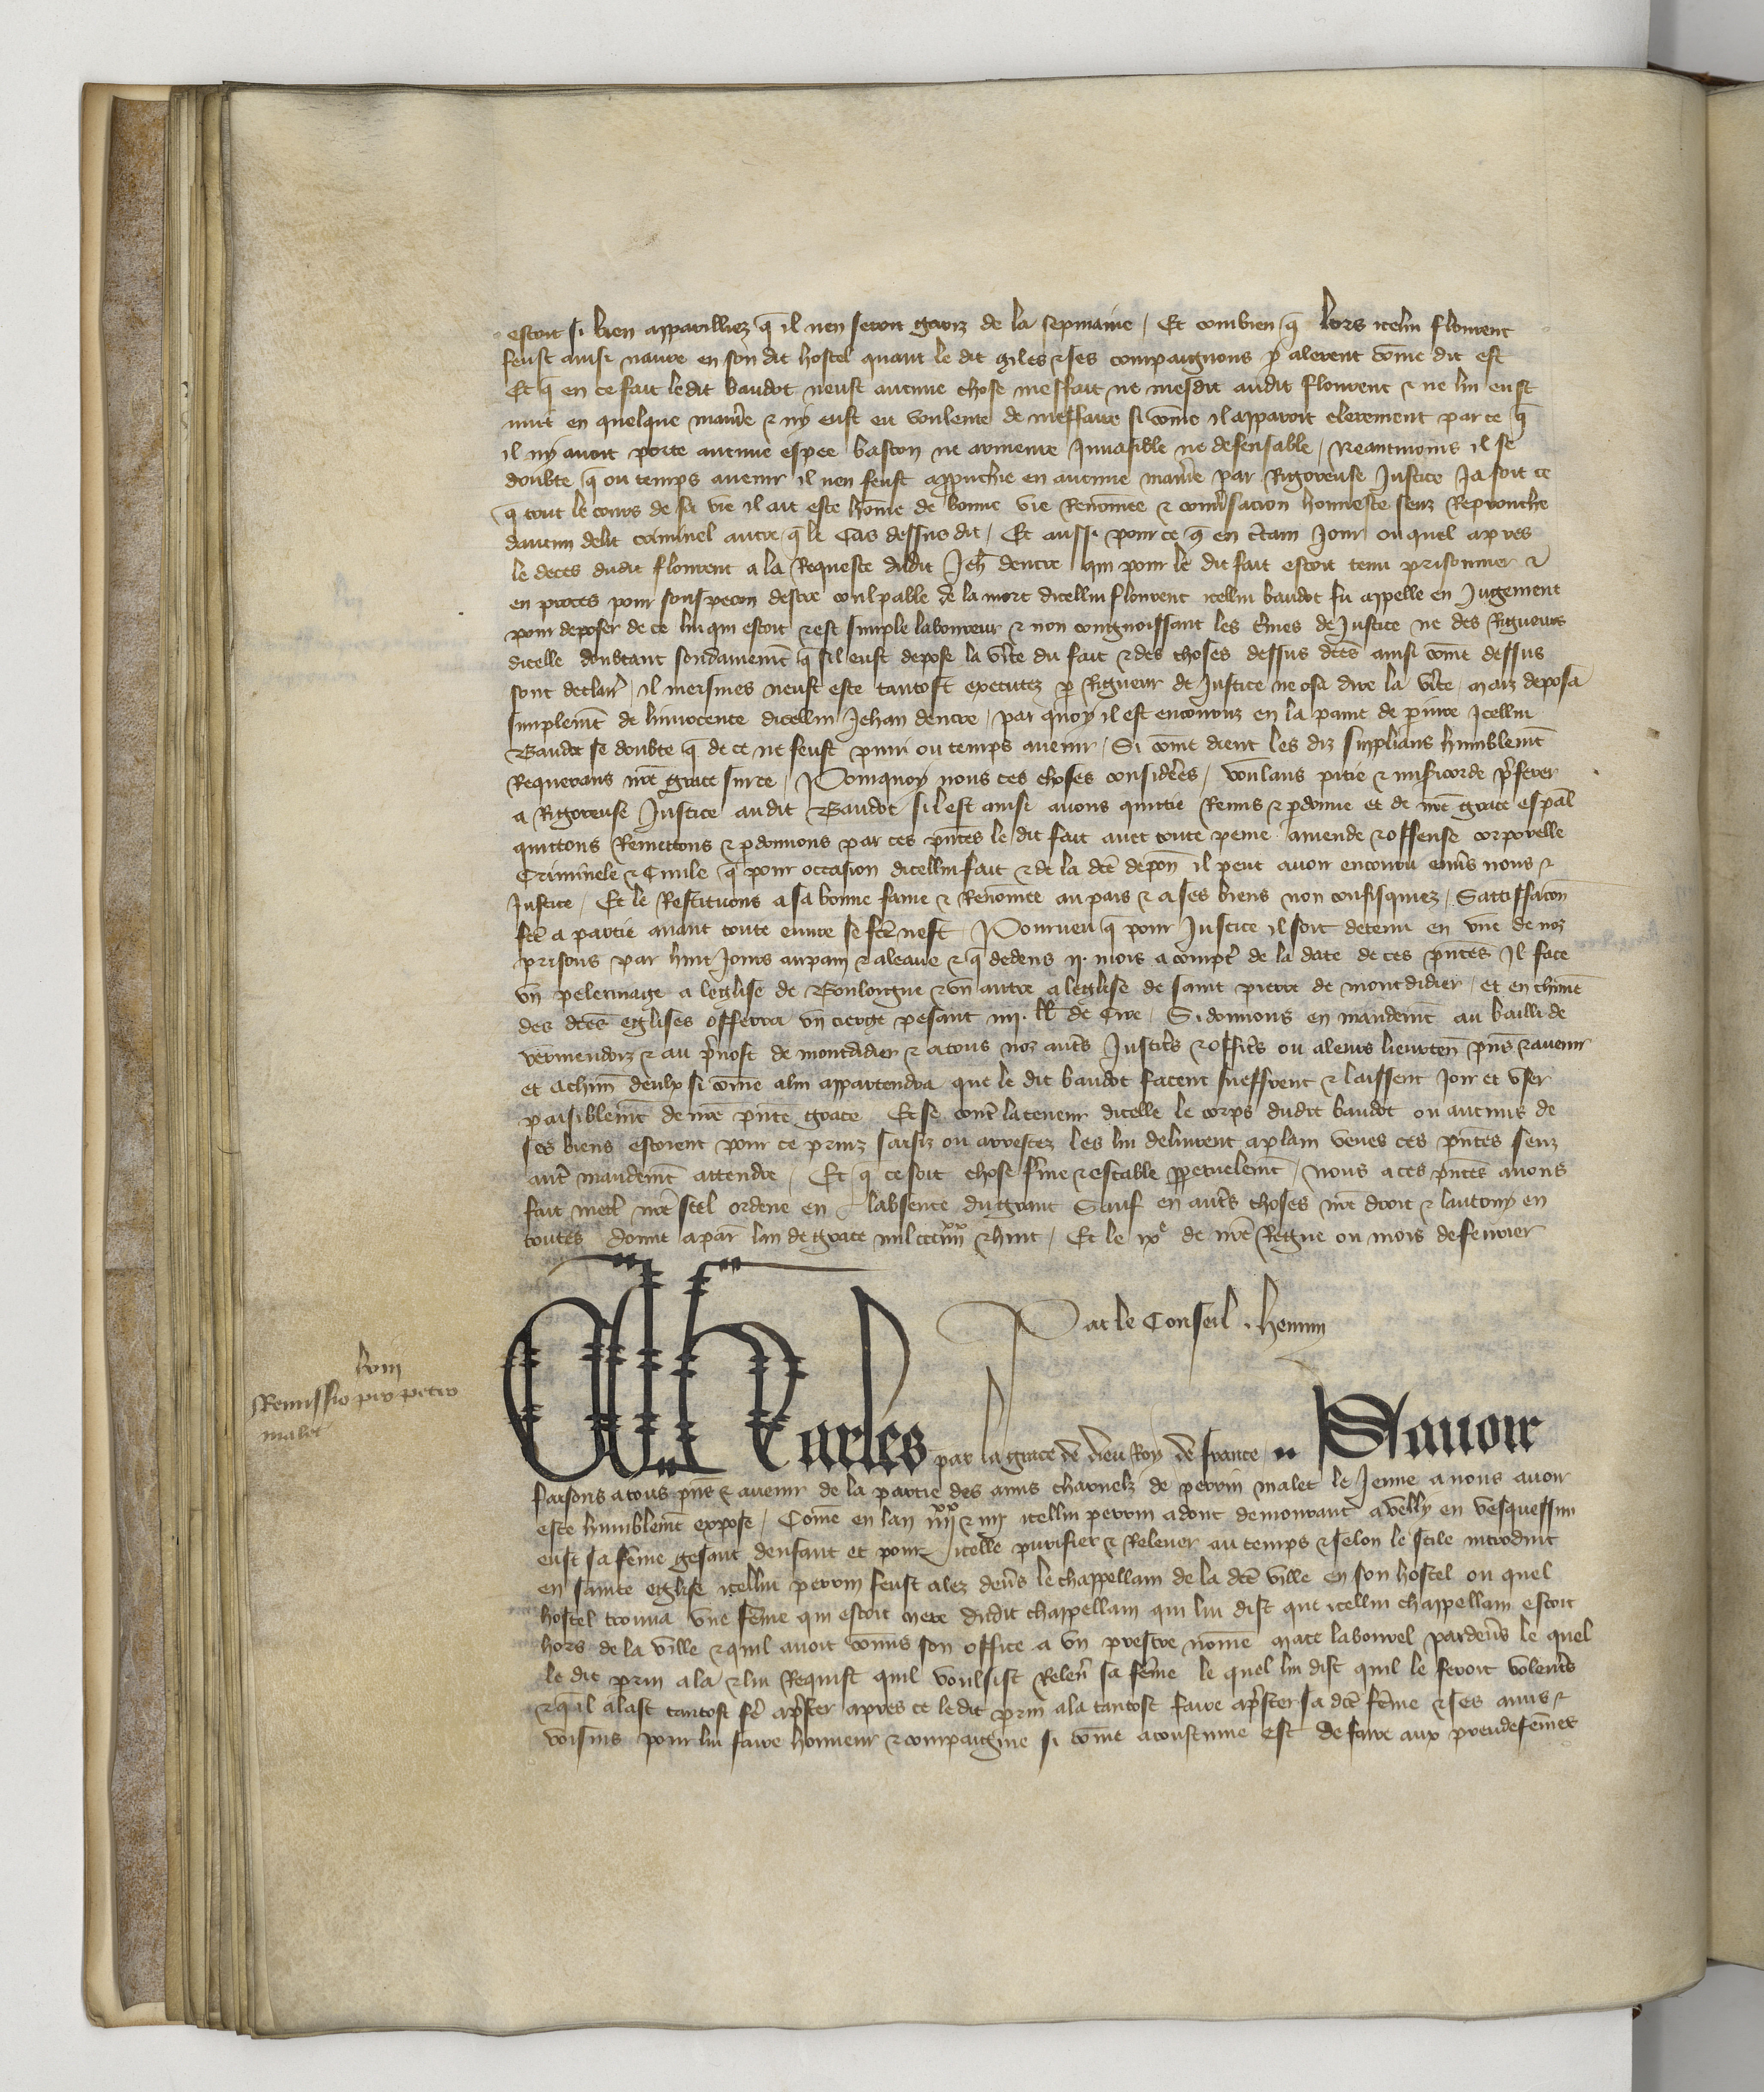 estoit si bien appareilliez q̃ il nen seroit gariz de la sepmaine / Et combien q̃ lors icelui flourent
feust ainsi navre en son dit hostel quant le dit giles & ses compaignons y alerent cõme dit est
Et q̃ en ce fait ledit baudot neust aucune chose meffait ne mesdit audit flourent & ne lui eust
nuit en quelque maniẽ & ny eust eu voulente de meffaire si cõme il apparoit clerement par ce q̃
il ny avoit porte aucune espee baston ne armeure Invasible ne defensable / Neantmoins il se
doubte q̃ ou temps avenir il nen feust appruchie en aucune maniẽ par Rigoreuse Justice Ja soit ce
q̃ tout le cours de sa vie il ait este hõme de bonne vie Renõmee & conv̾sacion honneste senz Reprouche
daucun delit criminel autre q̃ le Cas dessus dit / Et aussi pour ce q̃ en c̃tain Jour ou quel apres
le deces dudit flourent a la Requeste dudit Jeh̃ dencre qui pour le dit fait estoit tenu prisonnier &
en proces pour souspecon destre coulpable de la mort dicellui flourent icellui baudot fu appelle en Jugement
pour deposer de ce lui qui estoit & est simple laboureur & non congnoissant les t̾mes de Justice ne des Rigueurs
dicelle doubtant soudainem̃t q̃ sil eust depose la v̾ite du fait & des choses dessus dc̃es ainsi cõme dessus
sont declar̾ / il mesmes neust este tantost executez p̱ Rigueur de Justice ne osa dire la v̾ite / maiz deposa
simplem̃t de linnocence dicellui Jehan dencre / par quoy il est encouruz en la paine de p̱iure Icellui
Baudot se doubte q̃ de ce ne feust puni ou temps avenir / Si cõme dient les diz supplians humblem̃t
Requerans nr̃e grace sur ce / Pourquoy nous ces choses consider̾es / voulans pitie & mis̾icorde p̾ferer
a Rigoreuse Justice au dit Baudot sil est ainsi avons quittie Remis & p̱donne et de nr̃e grace esp̃al
quittons Remettons & p̱donnons par ces p̃ntes le dit fait avec toute peine amende & offense corporelle
Criminele & Civile q̃ pour occasion dicellui fait & de la dc̃e depoñ il peut avoir encouru env̾s nous &
Justice / Et le Restituons a sa bonne fame & Renõmee au pais & a ses biens non confisquiez / Satisfac̃on
fc̃e a partie avant toute euvre se fc̃e nest / Pourveu q̃ pour Justice il soit detenu en une de noz
prisons par huit Jours au pain & a leaue & q̃ dedens ij. mois a compt̾ de la date de ces p̃ntes Il face
un pelerinage a leglise de Boulongne & un autre a leglise de saint pierre de mondidier / et en chũne
des dc̃es eglises offerra un cierge pesant iiij. ll̃ de Cire / Si donnons en mandem̃t au bailli de
vermendoiz & au p̾vost de mondidier & a tous noz aut̾s Justic̾s & offic̾s ou a leurs lieuxteñ p̃ns & avenir
et a chũn deulx si cõme a lui appartendra que le dit baudot facent sueffrent & laissent Joir et user
paisiblem̃t de nr̃e p̃nte grace Et se cont̾ la teneur dicelle le corps dudit baudot ou aucuns de
ses biens estoient pour ce prinz saisiz ou arrestez les lui delivrent a plain veues ces p̃ntes senz
aut̾ mandem̃t attendre / Et q̃ ce soit chose f̾me & estable p̱petuelem̃t / nous a ces p̃ntes avons
fait mett̾ nr̃e scel ordene en labsence du grant Sauf en aut̾s choses nr̃e droit & lautruy en
toutes Donne a par̾ lan de grace mil ccc iiijxx & huit / Et le ixe de nr̃e Regne ou mois de fevrier
Par le Conseil . hemin
lviij
Remissio pro petro
malet
Charles par la grace de dieu Roy de france / .. Savoir
faisons a tous p̃ns & avenir de la partie des amis charnelz de perrin malet le Jeune a nous avoir
este humblem̃t expose / Cõme en lan iiijxx & iiij icellui perrin adont demourant a velly en vesquessin
eust sa fẽme gesant denfant et pour icelle purifier & Relever au temps & selon le stile introduit
en sainte eglise icellui perrin feust alez dev̾s le chappellain de la dc̃e ville en son hostel ou quel
hostel trouva une fẽme qui estoit mere dudit chappellain qui lui dist que icellui chappellain estoit
hors de la ville & quil avoit cõmis son office a un prestre nõme mace labourel par dev̾s le quel
le dit p̱rin ala & lui Requist quil voulsist Relev̾ sa fẽme le quel lui dist quil le feroit volent̾s
& quil alast tantost f̾e ap̾ster apres ce le dit p̱rin ala tantost faire ap̾ster sa dc̃e fẽme & ses amis &
voisins pour lui faire honneur & compaignie si cõme acoustume est de faire aux preudefẽmes